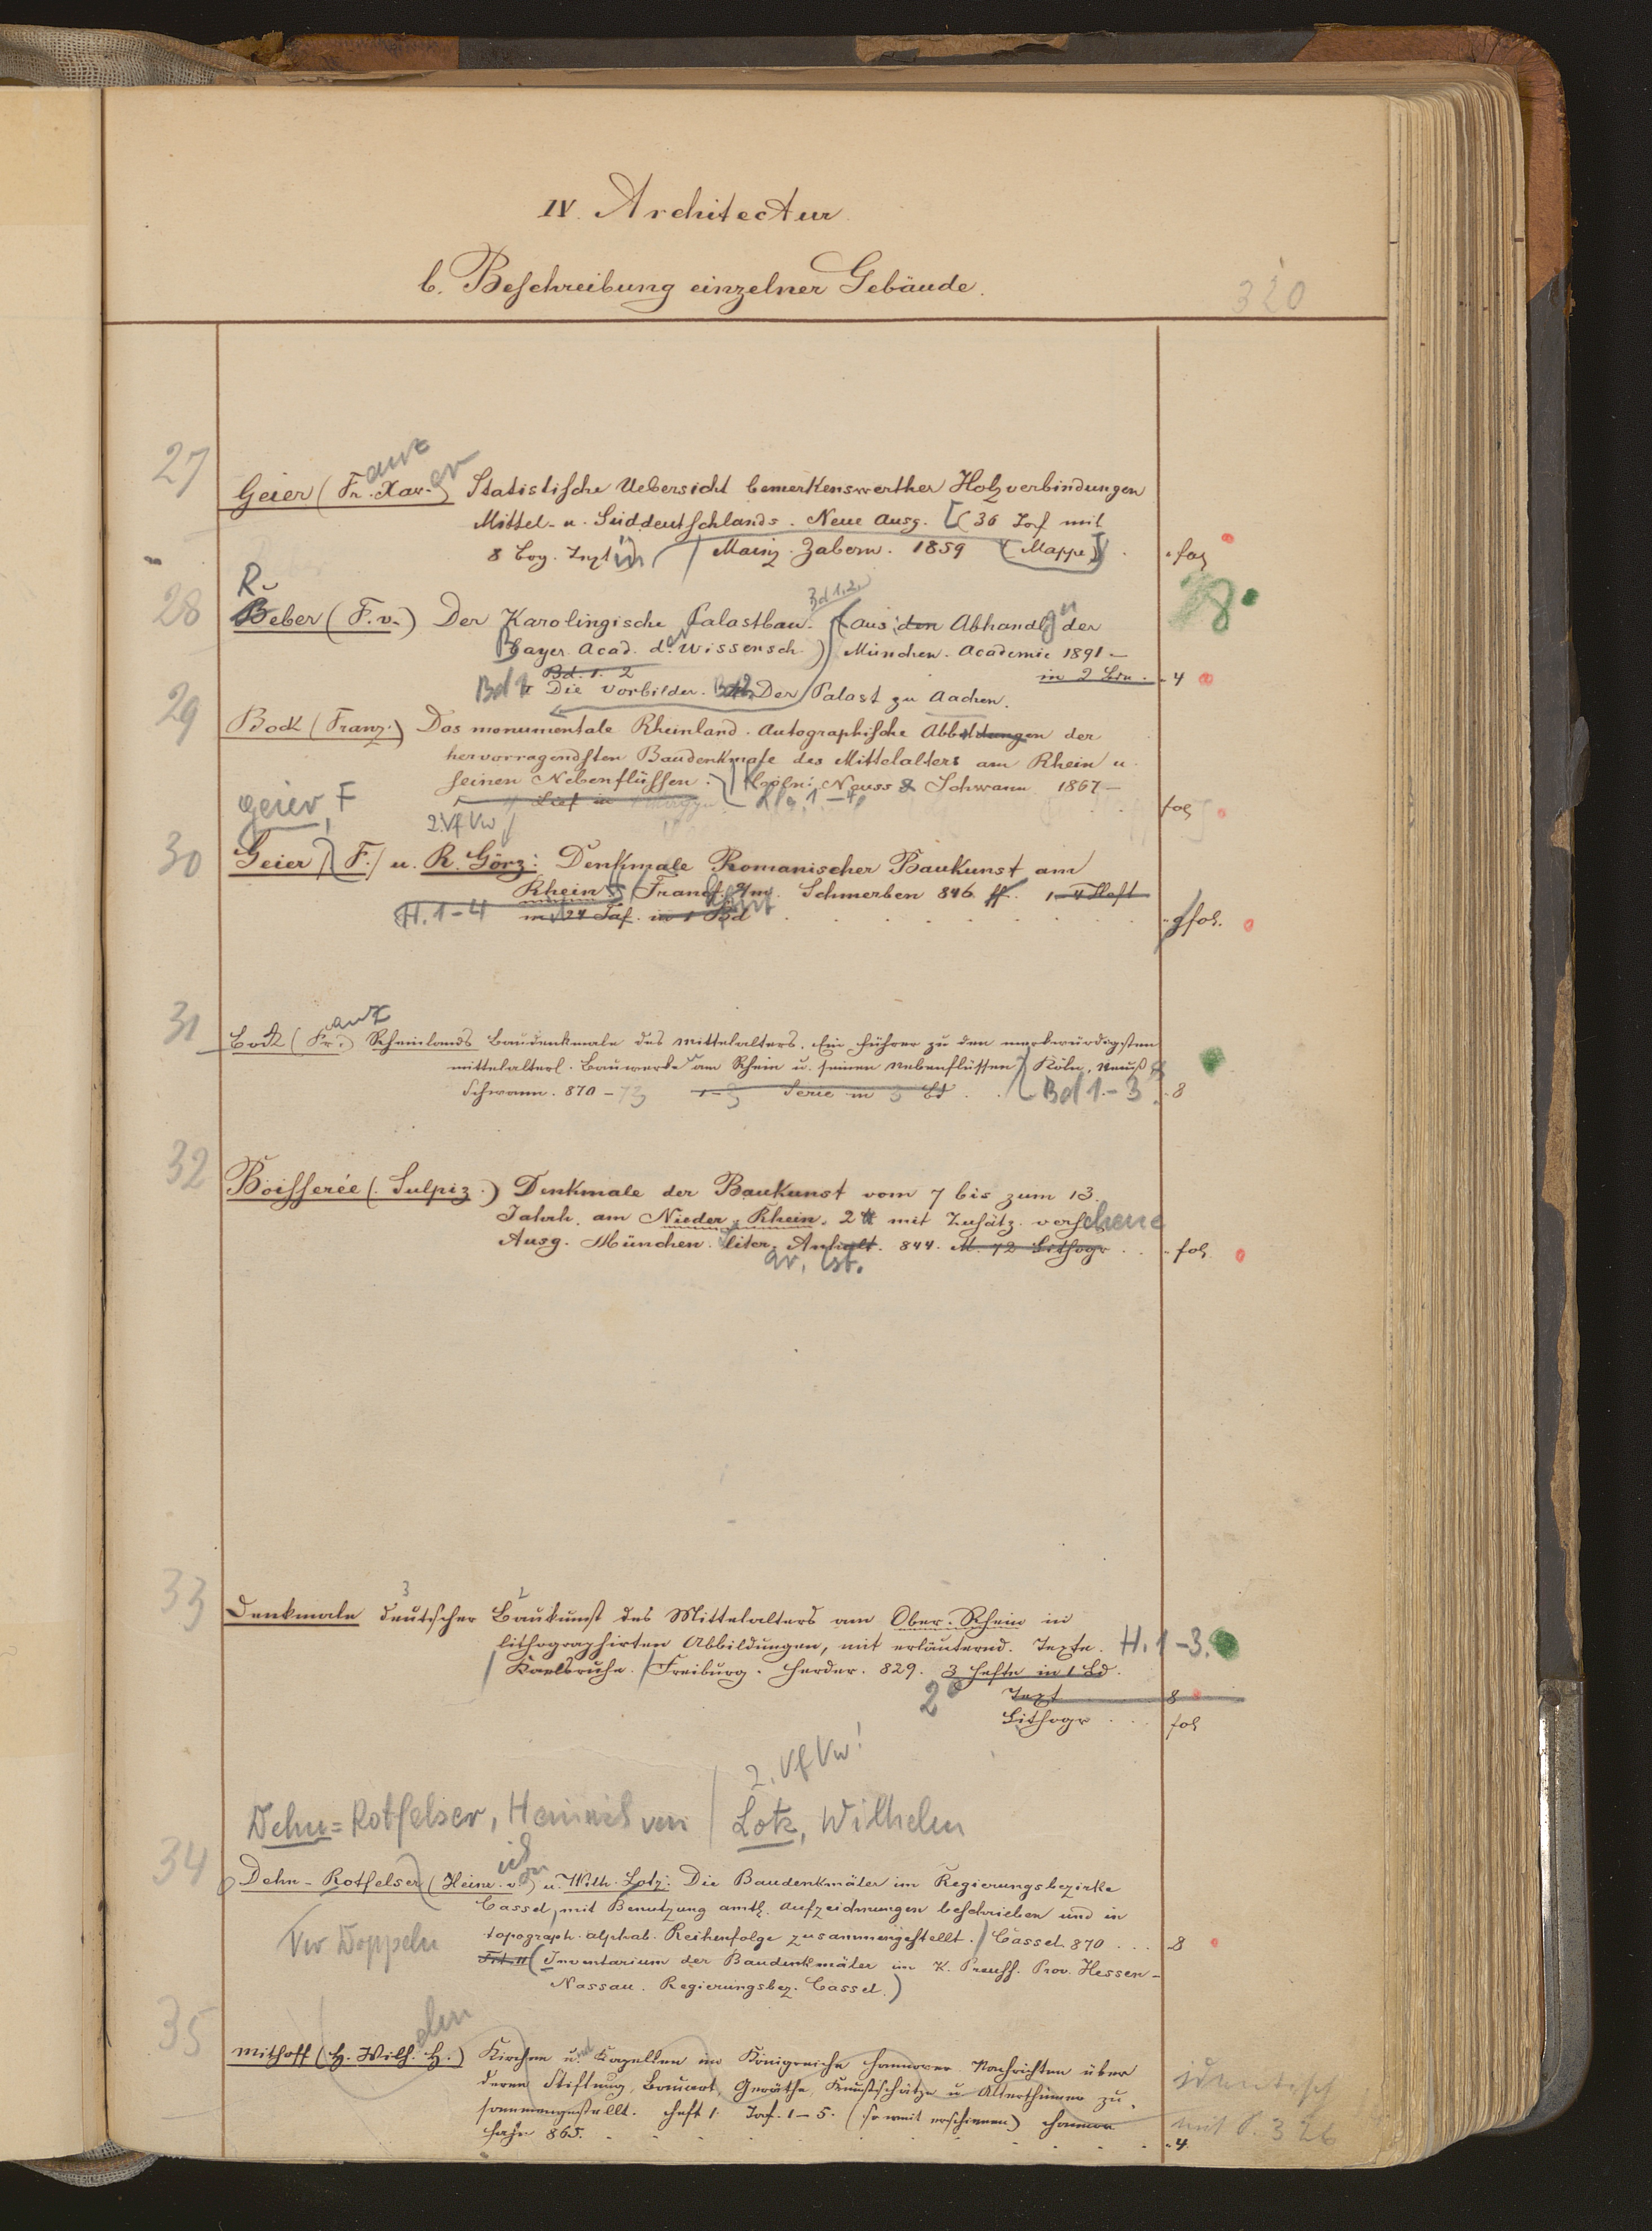 IV. Architectur.
b. Beschreibung einzelner Gebäude.
320
27
anz
er
Geier (Fr. Xav.) Statistische Uebersicht bemerkenswerther Holzverbindungen
Mittel- u. Süddeutschlands. Neue Ausg. [(36 Taf. mit
8 Bog. Text in Mainz. Zabern. 1859 (Mappe)] fol
R
28
Bd 1.2.
Beber (F. v.) Der Karolingische Palastbau. (aus den Abhandlgn der
Bayer. Acad. d. Wissensch.) München. Academie 1891 —
Bd. 1. 2 in 2 Bdn. 4
Bd 1 Die Vorbilder. Bd 2 Der Palast zu Aachen.
29
Bock (Franz.) Das monumentale Rheinland. Autographische Abbildungen der
hervorragendsten Baudenkmale des Mittelalters am Rhein u.
seinen Nebenflüssen. Köln: Neuss & Schwann 1867—
Lief. in Lfg. 1-4, fol
Geier, F
2. Vf Vw
30
Geier, F. u. R. Görz: Denkmale Romanischer Baukunst am
Rhein Francf. a/m. Schmerben 846 ff. 1-4 Heft
H. 1-4 m. 24 Taf. in 1 Bd gr fol.
31
anz
Bock (Fr.) Rheinlands Baudenkmale des Mittelalters. Ein Führer zu den merkwürdigsten
mittelalterl. Bauwerken am Rhein u. seinen Nebenflüssen Köln, Neuß &
Schwann. 870 - 73 1-3 Serie in 3 Bd Bd 1.-3. 8
32
Boisserée (Sulpiz.) Denkmale der Baukunst vom 7 bis zum 13.
Jahrh. am Nieder-Rhein. 2te mit Zusätz. versehene
Ausg. München. liter. Anstalt. 844. M. 72 Lithogr. fol
ar. ist.
33
3 2
Denkmale deutscher Baukunst des Mittelalters am Ober-Rhein in
lithographirten Abbildungen, mit erläuternd. Texte. H. 1-3.
Karlsruhe. Freiburg. Herder. 829. 3 Hefte in 1 Bd.
2° Text 8
Lithogr. fol
2. Vf Vw!
Dehn=Rotfelser, Heinrich von / Lotz, Wilhelm
34
ich
on
Dehn-Rotfelser (Heinr. v.) u. Wilh. Lotz: Die Baudenkmäler im Regierungsbezirke
Cassel, mit Benutzung amtl. Aufzeichnungen beschrieben und in
Vw Doppeln topograph.-alphab. Reihenfolge zusammengestellt. Cassel 870 8
(Inventarium der Baudenkmäler im K. Preuss. Prov. Hessen-
Nassau. Regierungsbez. Cassel.)
35
elm
Mithoff (H. Wilh. H.) Kirchen und Kapellen im Königreiche Hannover. Nachrichten über
deren Stiftung, Bauart, Geräthe, Kunstschätze u. Alterthümer zu-
identisch
sammengestellt. Heft 1. Taf. 1-5. (so weit erschienen) Hannov
mit S. 326
Hahn 865. 4